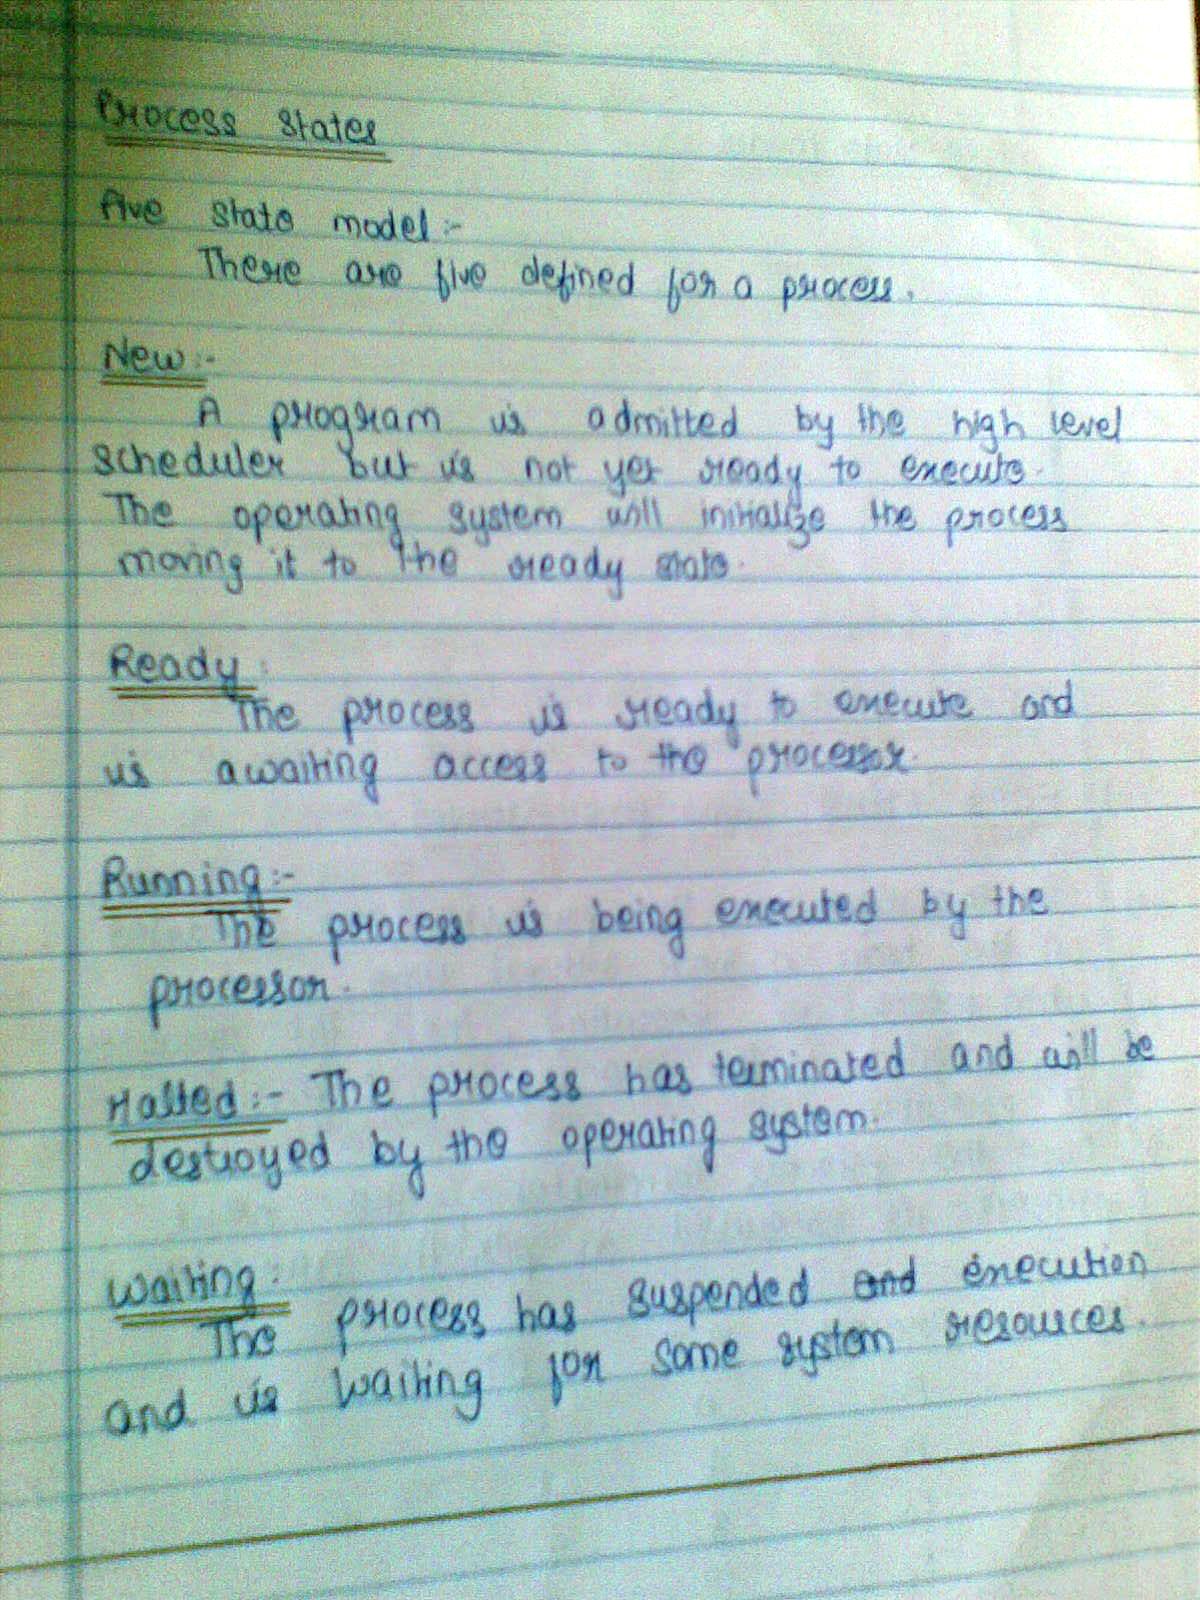 Process states
Five state model:-
There are five defined for a process.
New:-
A program is admitted by the high level
scheduler but is not yet ready to execute.
The operating system will initialize the process
moving it to the ready state.
Ready:
The process is ready to execute and
is awaiting access to the processor.
Running:-
The process is being executed by the
processor.
Halted:- The process has terminated and will be
destroyed by the operating system.
Waiting:
The process has suspended and execution
and is waiting for some system resources.